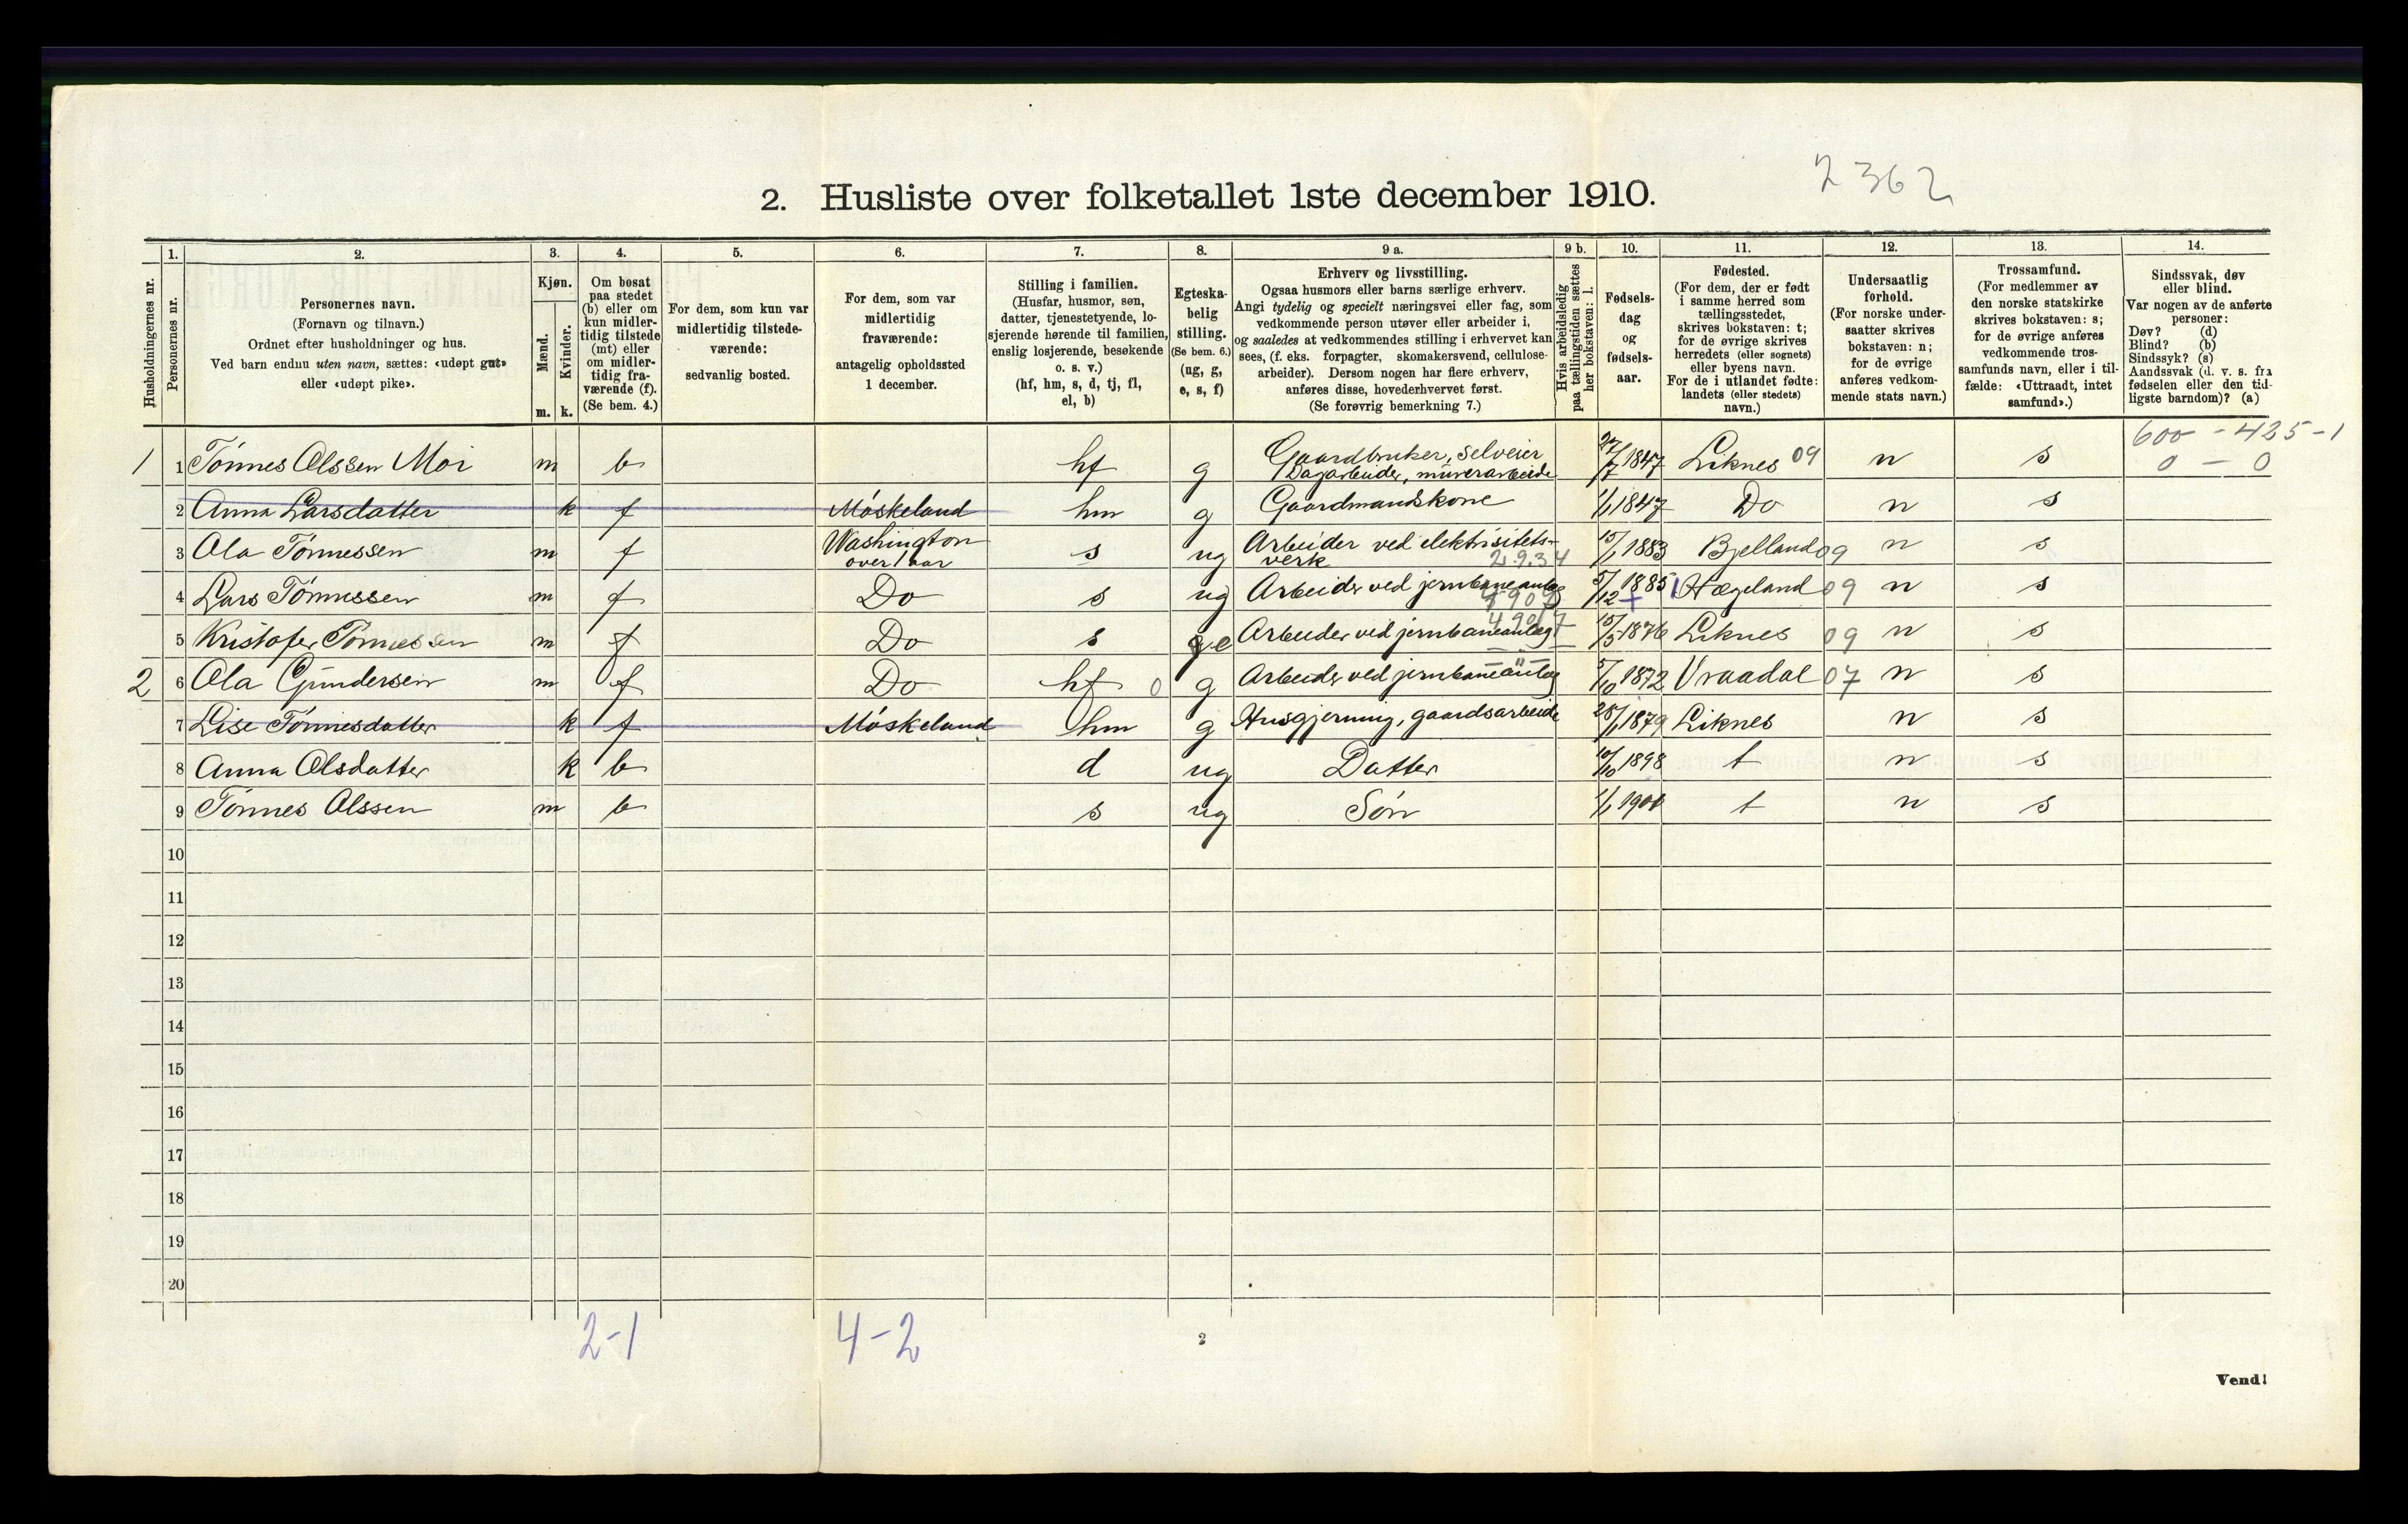 2362
2. Husliste over folketallet 1ste december 1910.
Husholdningernes nr.
1. Personernes nr.
2. Personernes navn.
(Fornavn og tilnavn.)
Ordnet efter husholdninger og hus.
Ved barn endnu uten navn, sættes: «udøpt gut»
eller «udøpt pike».
3. Kjøn.
Mænd. m.
Kvinder. k.
4. Om bosat
paa stedet
(b) eller om
kun midler-
tidig tilstede
(mt) eller
om midler-
tidig fra-
værende (f).
(Se bem. 4.)
5. For dem, som kun var
midlertidig tilstede-
værende:
sedvanlig bosted.
6. For dem, som var
midlertidig
fraværende:
antagelig opholdssted
1 december.
7. Stilling i familien.
(Husfar, husmor, søn,
datter, tjenestetyende, lo-
sjerende hørende til familien,
enslig losjerende, besøkende
o. s. v.)
(hf, hm, s, d, tj, fl,
el, b)
8. Egteska-
belig
stilling.
(Se bem. 6.)
(ug, g,
e, s, f)
9 a. Erhverv og livsstilling.
Ogsaa husmors eller barns særlige erhverv.
Angi tydelig og specielt næringsvei eller fag, som
vedkommende person utøver eller arbeider i,
og saaledes at vedkommendes stilling i erhvervet kan
sees, (f. eks. forpagter, skomakersvend, cellulose-
arbeider). Dersom nogen har flere erhverv,
anføres disse, hovederhvervet først.
(Se forøvrig bemerkning 7.)
9 b. Hvis arbeidsledig
paa tællingstiden sættes
her bokstaven: l.
10. Fødsels-
dag
og
fødsels-
aar.
11. Fødested.
(For dem, der er født
i samme herred som
tællingsstedet,
skrives bokstaven: t;
for de øvrige skrives
herredets (eller sognets)
eller byens navn.
For de i utlandet fødte:
landets (eller stedets)
navn.)
12. Undersaatlig
forhold.
(For norske under-
saatter skrives
bokstaven: n;
for de øvrige
anføres vedkom-
mende stats navn.)
13. Trossamfund.
(For medlemmer av
den norske statskirke
skrives bokstaven: s;
for de øvrige anføres
vedkommende tros-
samfunds navn, eller i til-
fælde: «Uttraadt, intet
samfund».)
14. Sindssvak, døv
eller blind.
Var nogen av de anførte
personer:
Døv? (d)
Blind? (b)
Sindssyk? (s)
Aandssvak (d. v. s. fra
fødselen eller den tid-
ligste barndom)? (a)
600 - 425 - 1
0 - 0
1 1 Tönnes Olssen Moi m b hf g Gaardbruker, selveier
Dagarbeider, murerarbeide 27/7 1847 Liknes 09 n s
2 Anna Larsdatter k f Möskeland hm g Gaardmandskone 1/1 1847 Do n s
3 Ola Tönnessen m f Washington
over 1 aar s ug Arbeider ved elektrisitets-
verk 2.9.34 15/1 1883 Bjelland 09 n s
4 Lars Tönnessen m f Do s ug Arbeider ved jernbaneanlæg 5/12 1885 Hægeland 09 n s
5 Kristofer Tönnessen m f Do s e Arbeider ved jernbaneanlæg 15/5 1876 Liknes 09 n s
2 6 Ola Gundersen m f Do hf 0 g Arbeider ved jernbaneanlæg 5/10 1872 Vraadal 07 n s
7 Lise Tönnesdatter k f Möskeland hm g Husgjerning, gaardsarbeide 28/1 1879 Liknes n s
8 Anna Olsdatter k b d ug Datter 10/10 1898 t n s
9 Tönnes Olssen m b s ug Sön 1/1 1901 t n s
10
11
12
13
14
15
16
17
18
19
20
2-1 4-2
2
Vend!